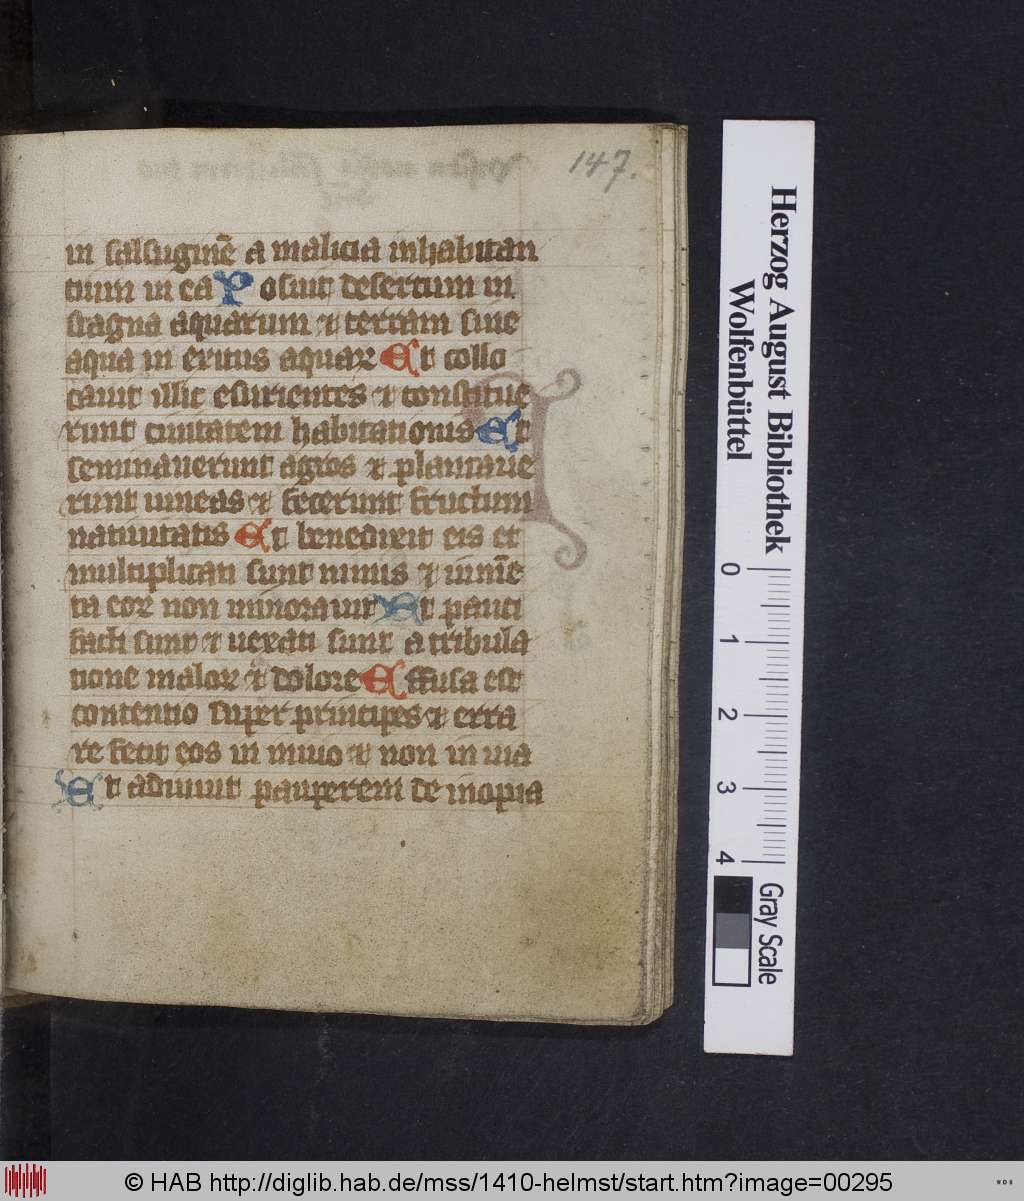 147.
in salsuginē a malicia inhabitan
tium in ea Posuit desertum in
stagna aquarum & terram sine
aqua in exitus aquaꝝ Et collo
cauit illic esurientes & constitue
runt ciuitatem habitationis Et
seminauerunt agros & plantaue
runt uineas & fecerunt fructum
natiuitatis Et benedixit eis et
multiplicati sunt nimis & iumē
ta eoꝝ non minorauit Et pauci
facti sunt & uexati sunt a tribula
tione maloꝝ & dolore Effusa est
contentio super principes & erra
re fecit eos in inuio & non in uia
Et adiuuit pauperem de inopia
Herzog August Bibliothek
Wolfenbüttel
0 1 2 3 4
Gray Scale
© HAB http://diglib.hab.de/mss/1410-helmst/start.htm?image=00295